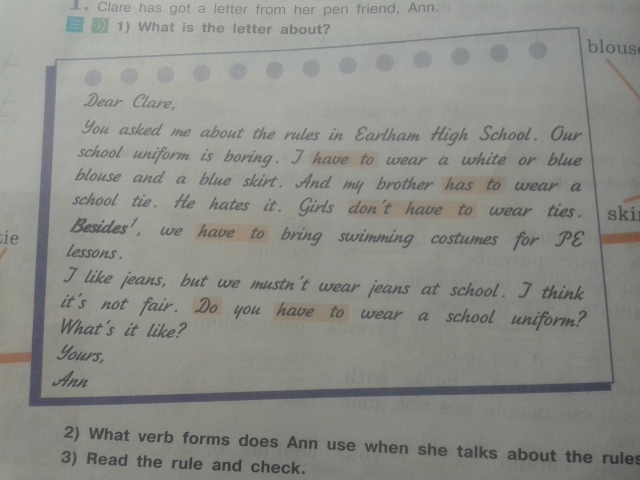 1. Clare has got a letter from her pen friend, Ann.
1) What is the letter about?
blouse
Dear Clare,
You asked me about the rules in Earlham High School. Our
school uniform is boring. I have to wear a white or blue
blouse and a blue skirt. And my brother has to wear a
school tie. He hates it. Girls don't have to wear ties.
Besides¹, we have to bring swimming costumes for PE
lessons.
I like jeans, but we mustn't wear jeans at school. I think
it's not fair. Do you have to wear a school uniform?
What's it like?
Yours,
Ann
tie
ski
2) What verb forms does Ann use when she talks about the rules
3) Read the rule and check.